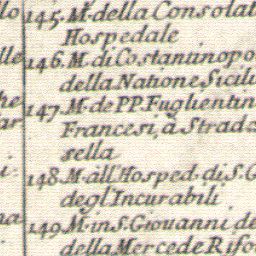 145. M. della Consola
Hospedale
146. M. di Costantinopo
della Natione Sicili
147. M. de PP. Fuglientin
Francesi, à Strada
sella
148. M. all'Hosped. di S. G
degl'Incurabili
149. M. in S. Giovanni de
della Mercede Rifo